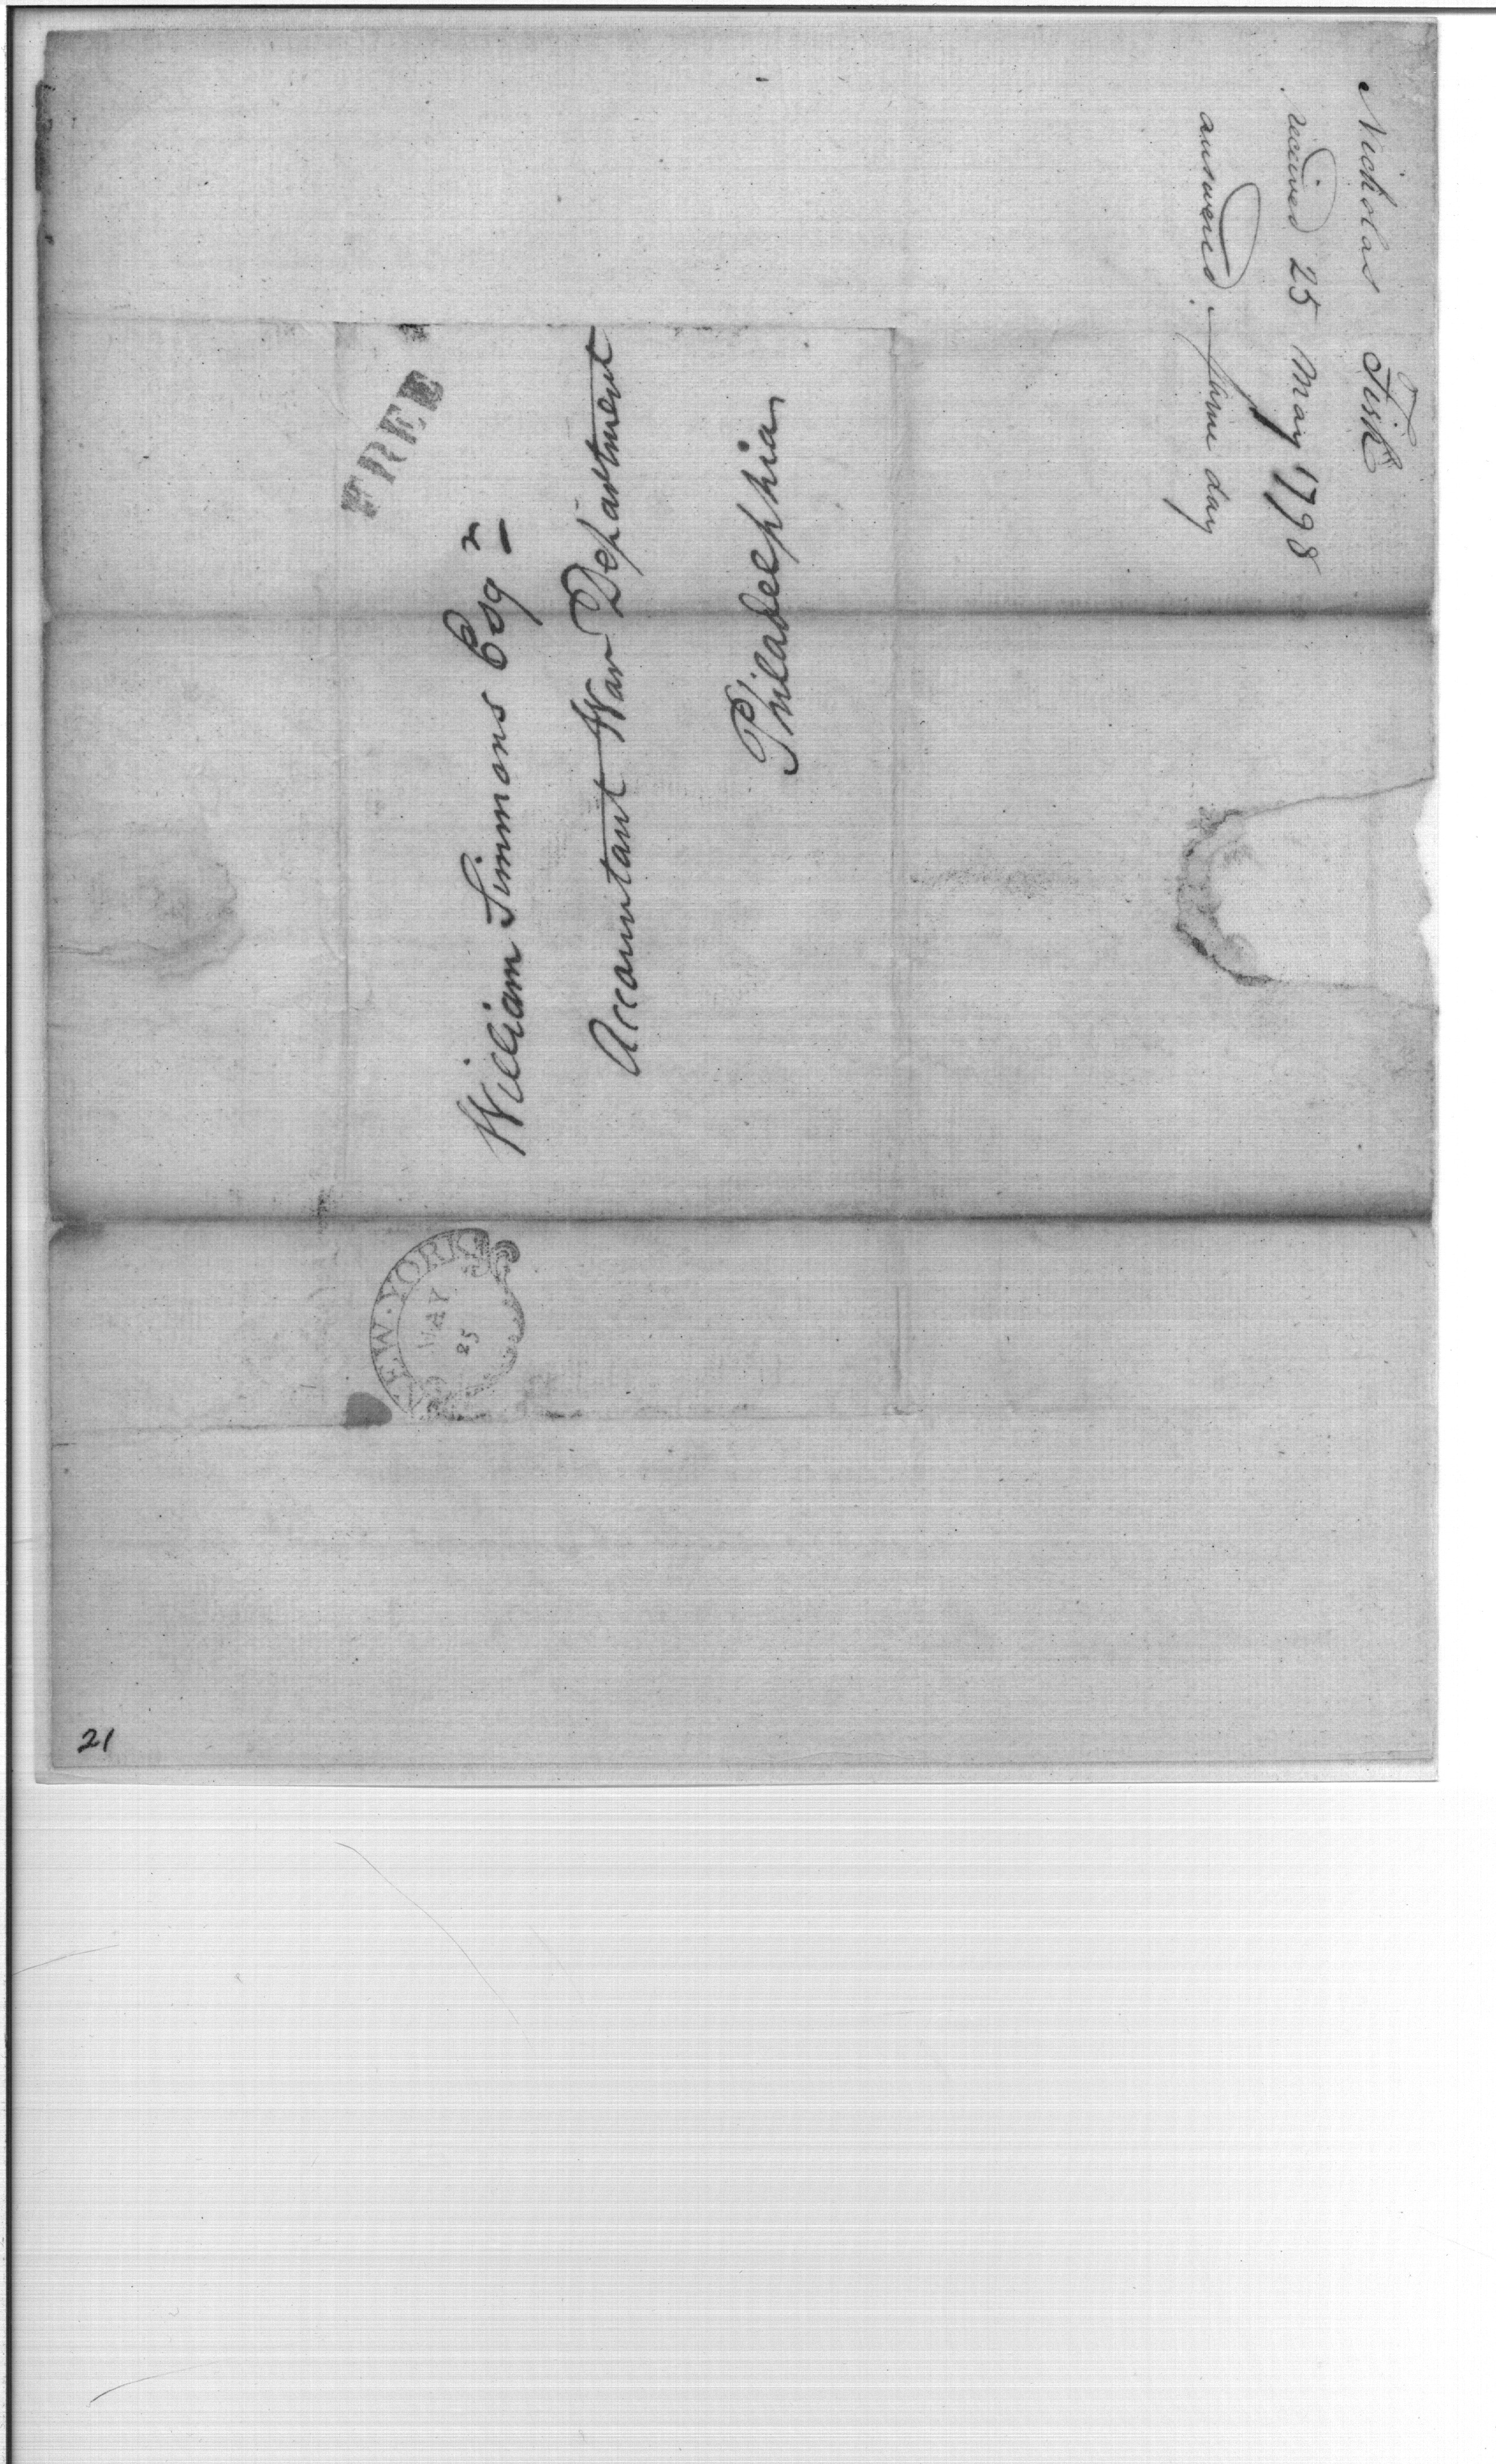 Nicholas Fish
received 25 May 1798
answered. same day
FREE
William Simmons Esqr
Accountant War Department
Philadelphia
NEW-YORK
MAY
25
21